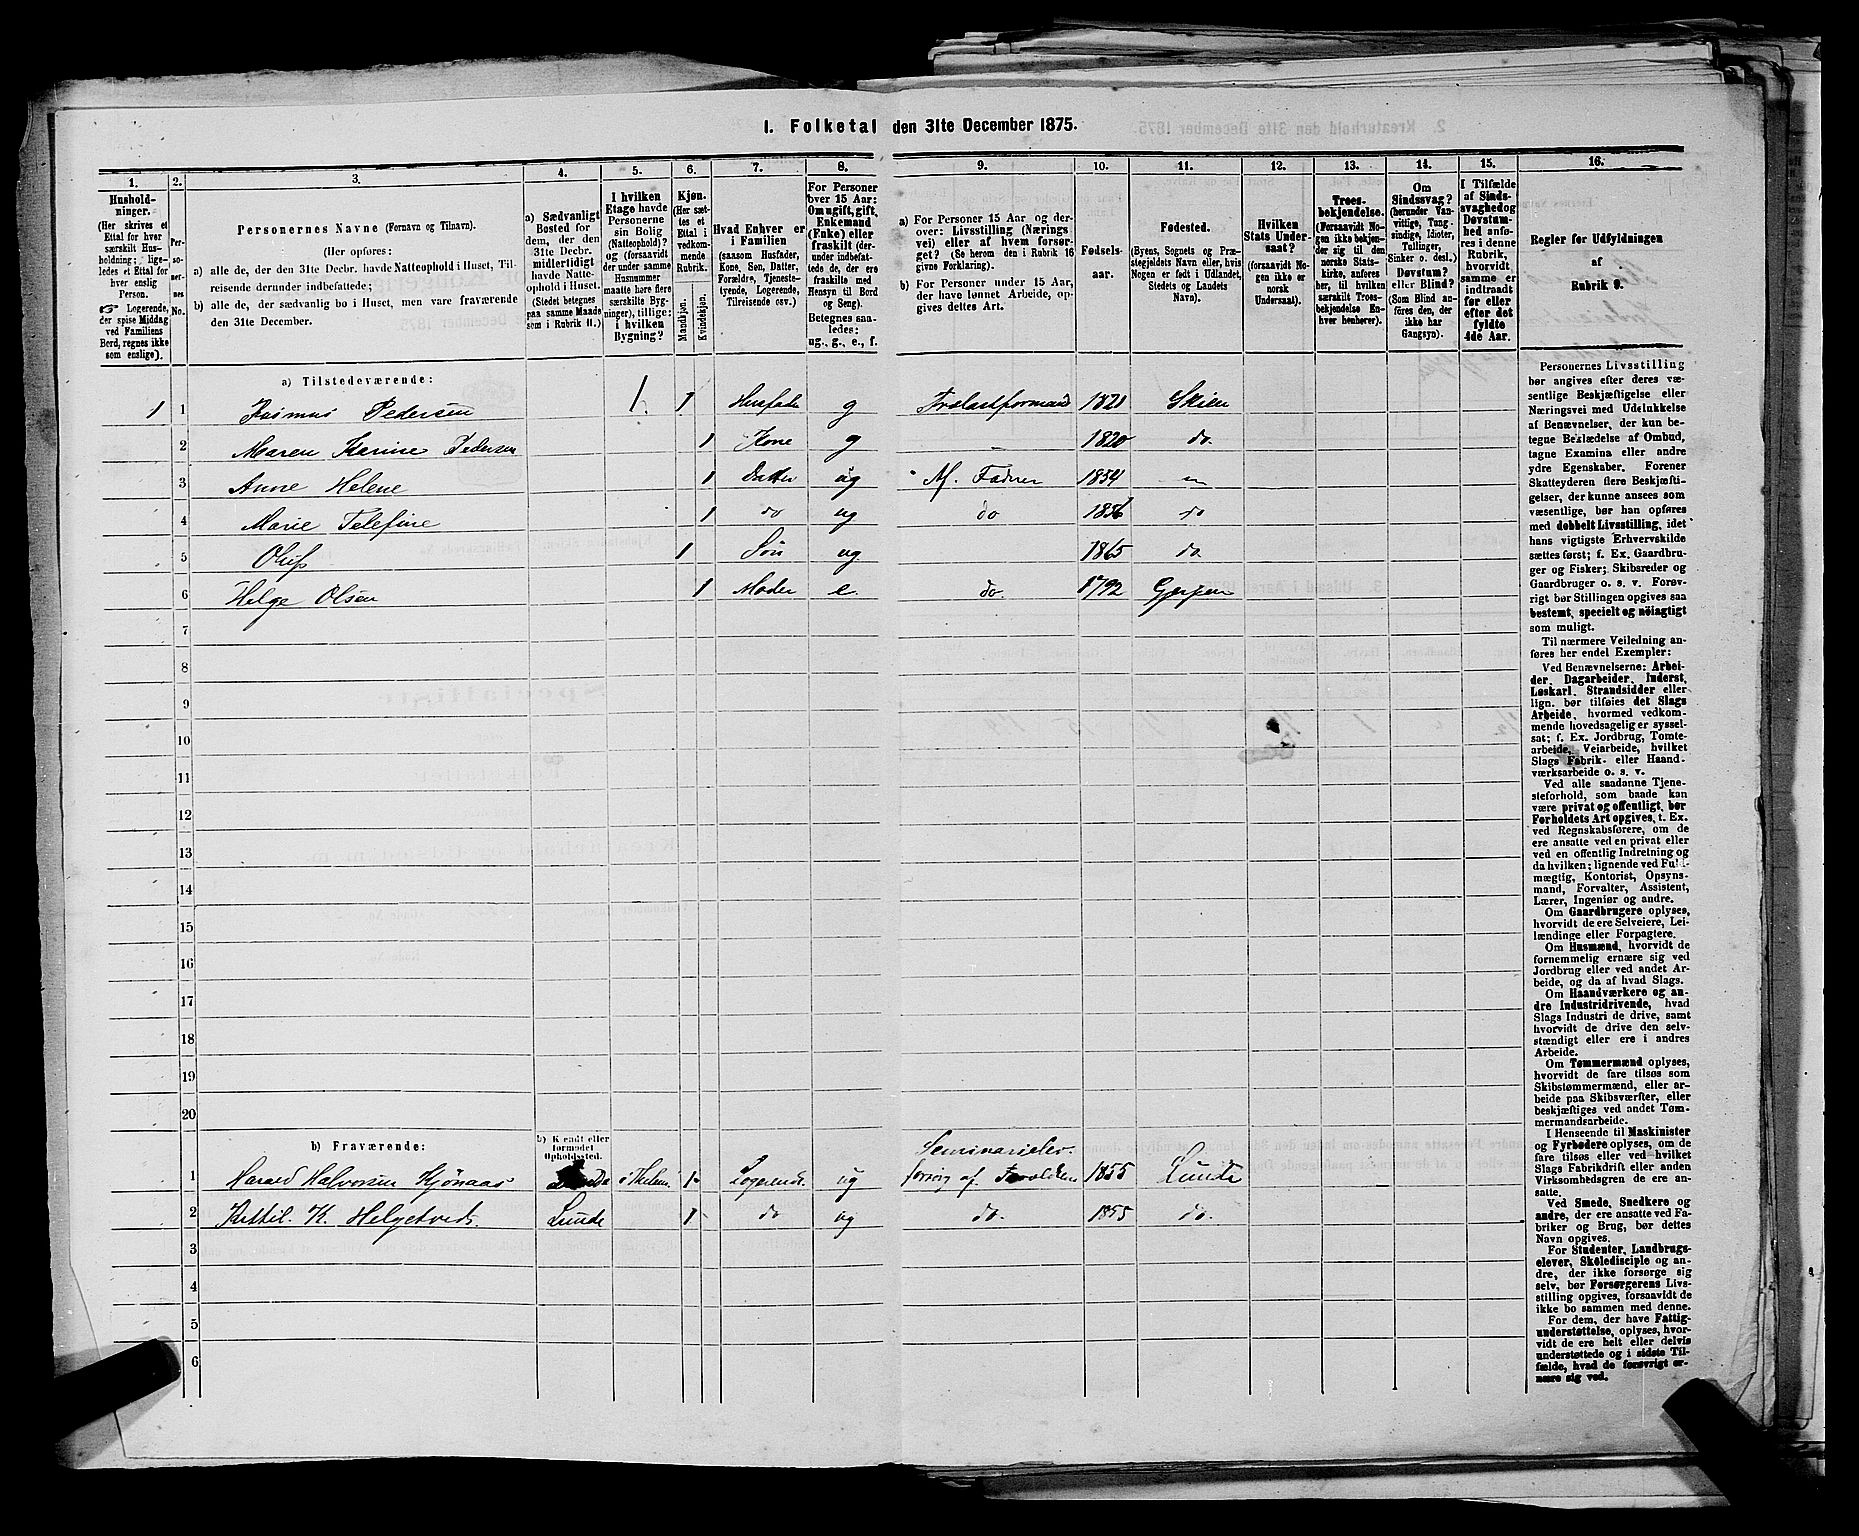 1. Folketal den 31te December 1875.
1. 2. 3. 4. 5. 6. 7. 8. 9. 10. 11. 12. 13. 14. 15. 16.
Hushold-
ninger.
(Her skrives et
Ettal for hver
særskilt Hus-
holdning; lige-
ledes et Ettal for
hver enslig
Person.
Logerende,
der spise Middag
ved Familiens
Bord, regnes ikke
som enslige).
Per-
so-
ner-
nes
No.
Personernes Navne (Fornavn og Tilnavn).
(Her opføres:
a) alle de, der den 31te Decbr. havde Natteophold i Huset, Til-
reisende derunder indbefattede;
b) alle de, der sædvanlig bo i Huset, men vare fraværende
den 31te December.
a) Sædvanligt
Bosted for
dem, der den
31te Decbr.
midlertidigt
havde Natte-
ophold i Huset.
(Stedet betegnes
paa samme Maade
som i Rubrik 11.)
I hvilken
Etage havde
Personerne
sin Bolig
(Natteophold)?
og (forsaavidt
der under samme
Husnummer
maatte høre flere
særskilte Byg-
ninger), tillige:
i hvilken
Bygning?
Kjøn.
(Her sæt-
tes et
Ettal i
vedkom-
mende
Rubrik.
Mandkjøn.
Kvindekjøn.
Hvad Enhver er
i Familien
(saasom Husfader,
Kone, Søn, Datter,
Forældre, Tjeneste-
tyende, Logerende,
Tilreisende osv.)
For Personer
over 15 Aar:
Om ugift, gift,
Enkemand
(Enke) eller
fraskilt (der-
under indbefat-
tede de, der ere
fraskilte med
Hensyn til Bord
og Seng).
Betegnes saa-
ledes:
ug., g., e., f.
a) For Personer 15 Aar og der-
over: Livsstilling (Nærings
vei) eller af hvem forsør-
get? (Se herom den i Rubrik 16
givne Forklaring).
b) For Personer under 15 Aar,
der have lønnet Arbeide, op-
gives dettes Art.
Fødsels-
aar.
Fødested.
(Byens, Sognets og Præ-
stegjeldets Navn eller, hvis
Nogen er født i Udlandet,
Stedets og Landets
Navn).
Hvilken
Stats Under-
saat?
(forsaavidt No-
gen ikke er
norsk
Undersaat).
Troes-
bekjendelse.
(Forsaavidt No-
gen ikke bekjen-
der sig til den
norske Stats-
kirke, anføres
her, til hvilken
særskilt Troes-
bekjendelse En-
hver henhører).
Om
Sindssvag?
(herunder Van-
vittige, Tung-
sindige, Idioter,
Tullinger,
Sinker o. desl.)
Døvstum?
eller Blind?
(Som Blind an-
føres den, der
ikke har
Gangsyn).
I Tilfælde
af Sinds-
svaghed og
Døvstum-
hed anfø-
res i denne
Rubrik,
hvorvidt
samme er
indtraadt
før eller
efter det
fyldte
4de Aar.
Regler for Udfyldningen
af
Rubrik 9.
a) Tilstedeværende:
1 1 Rasmus Pedersen 1. 1 Husfader g Trælastformand 1821 Skien
2 Maren Karine Pedersen 1 Kone g – 1820 do
3 Anne Helene 1 Datter ug Af. Fader 1854 "
4 Marie Telefine 1 do ug do 1856 do
5 Oluf 1 Søn ug 1865 do.
6 Helge Olsen 1 Moder e. do. 1792 Gjerpen
7
8
9
10
11
12
13
14
15
16
17
18
19
20
b) Fraværende:
b) Kjendt eller
formodet
Opholdssted.
1 Harald Halvorsen Kjønaas Lunde i Thelem. 1 Logerende ug Seminarielev
forsørg af Forældre 1855 Lunde
2 Kittil. K. Helgetveds. Lunde 1 do ug do. 1855 do.
3
4
5
6
Personernes Livsstilling
bør angives efter deres væ-
sentlige Beskjæftigelse eller
Næringsvei med Udelukkelse
af Benævnelser, der kun be-
tegne Beklædelse af Ombud,
tagne Examina eller andre
ydre Egenskaber. Forener
Skatteyderen flere Beskjæfti-
gelser, der kunne ansees som
væsentlige, bør han opføres
med dobbelt Livsstilling, idet
hans vigtigste Erhvervskilde
sættes først; f. Ex. Gaardbru-
ger og Fisker; Skibsreder og
Gaardbruger o. s. v. Forøv-
rigt bør Stillingen opgives saa
bestemt, specielt og nøiagtigt
som muligt.
Til nærmere Veiledning an-
føres her endel Exempler:
Ved Benævnelserne: Arbei-
der, Dagarbeider, Inderst,
Løskarl, Strandsidder eller
lign. bør tilføies det Slags
Arbeide, hvormed vedkom-
mende hovedsagelig er syssel-
sat; f. Ex. Jordbrug, Tomte-
arbeide, Veiarbeide, hvilket
Slags Fabrik- eller Haand-
værksarbeide o. s. v.
Ved alle saadanne Tjene-
steforhold, som baade kan
være privat og offentligt, bør
Forholdets Art opgives, t. Ex.
ved Regnskabsførere, om de
ere ansatte ved en privat eller
ved en offentlig Indretning og
da hvilken; lignende ved Fuld-
mægtig, Kontorist, Opsyns-
mand, Forvalter, Assistent,
Lærer, Ingeniør og andre.
Om Gaardbrugere oplyses,
hvorvidt de ere Selveiere, Lei-
lændinge eller Forpagtere.
Om Husmænd, hvorvidt de
fornemmelig ernære sig ved
Jordbrug eller ved andet Ar-
beide, og da af hvad Slags.
Om Haandværkere og an-
dre Industridrivende, hvad
Slags Industri de drive, samt
hvorvidt de drive den selv-
stændigt eller ere i andres
Arbeide.
Om Tømmermænd oplyses,
hvorvidt de fare tilsøs som
Skibstømmermænd, eller ar-
beide paa Skibsværfter, eller
beskjæftiges ved andet Tøm-
mermandsarbeide.
I Henseende til Maskinister
og Fyrbødere oplyses, om de
fare tilsøs eller ved hvilket
Slags Fabrikdrift eller anden
Virksomhedsgren de ere an-
satte.
Ved Smede, Snedkere og
andre, der ere ansatte ved Fa-
briker og Brug, bør dettes
Navn opgives.
For Studenter, Landbrugs-
elever, Skoledisciple og an-
dre, der ikke forsørge sig
selv, bør Forsørgerens Livs-
stilling opgives, forsaavidt de
ikke bo sammen med denne.
For dem, der have Fattig-
understøttelse, oplyses, hvor-
vidt de ere helt eller delvis
understøttede og i sidste Til-
fælde, hvad de forøvrigt er-
nære sig ved.